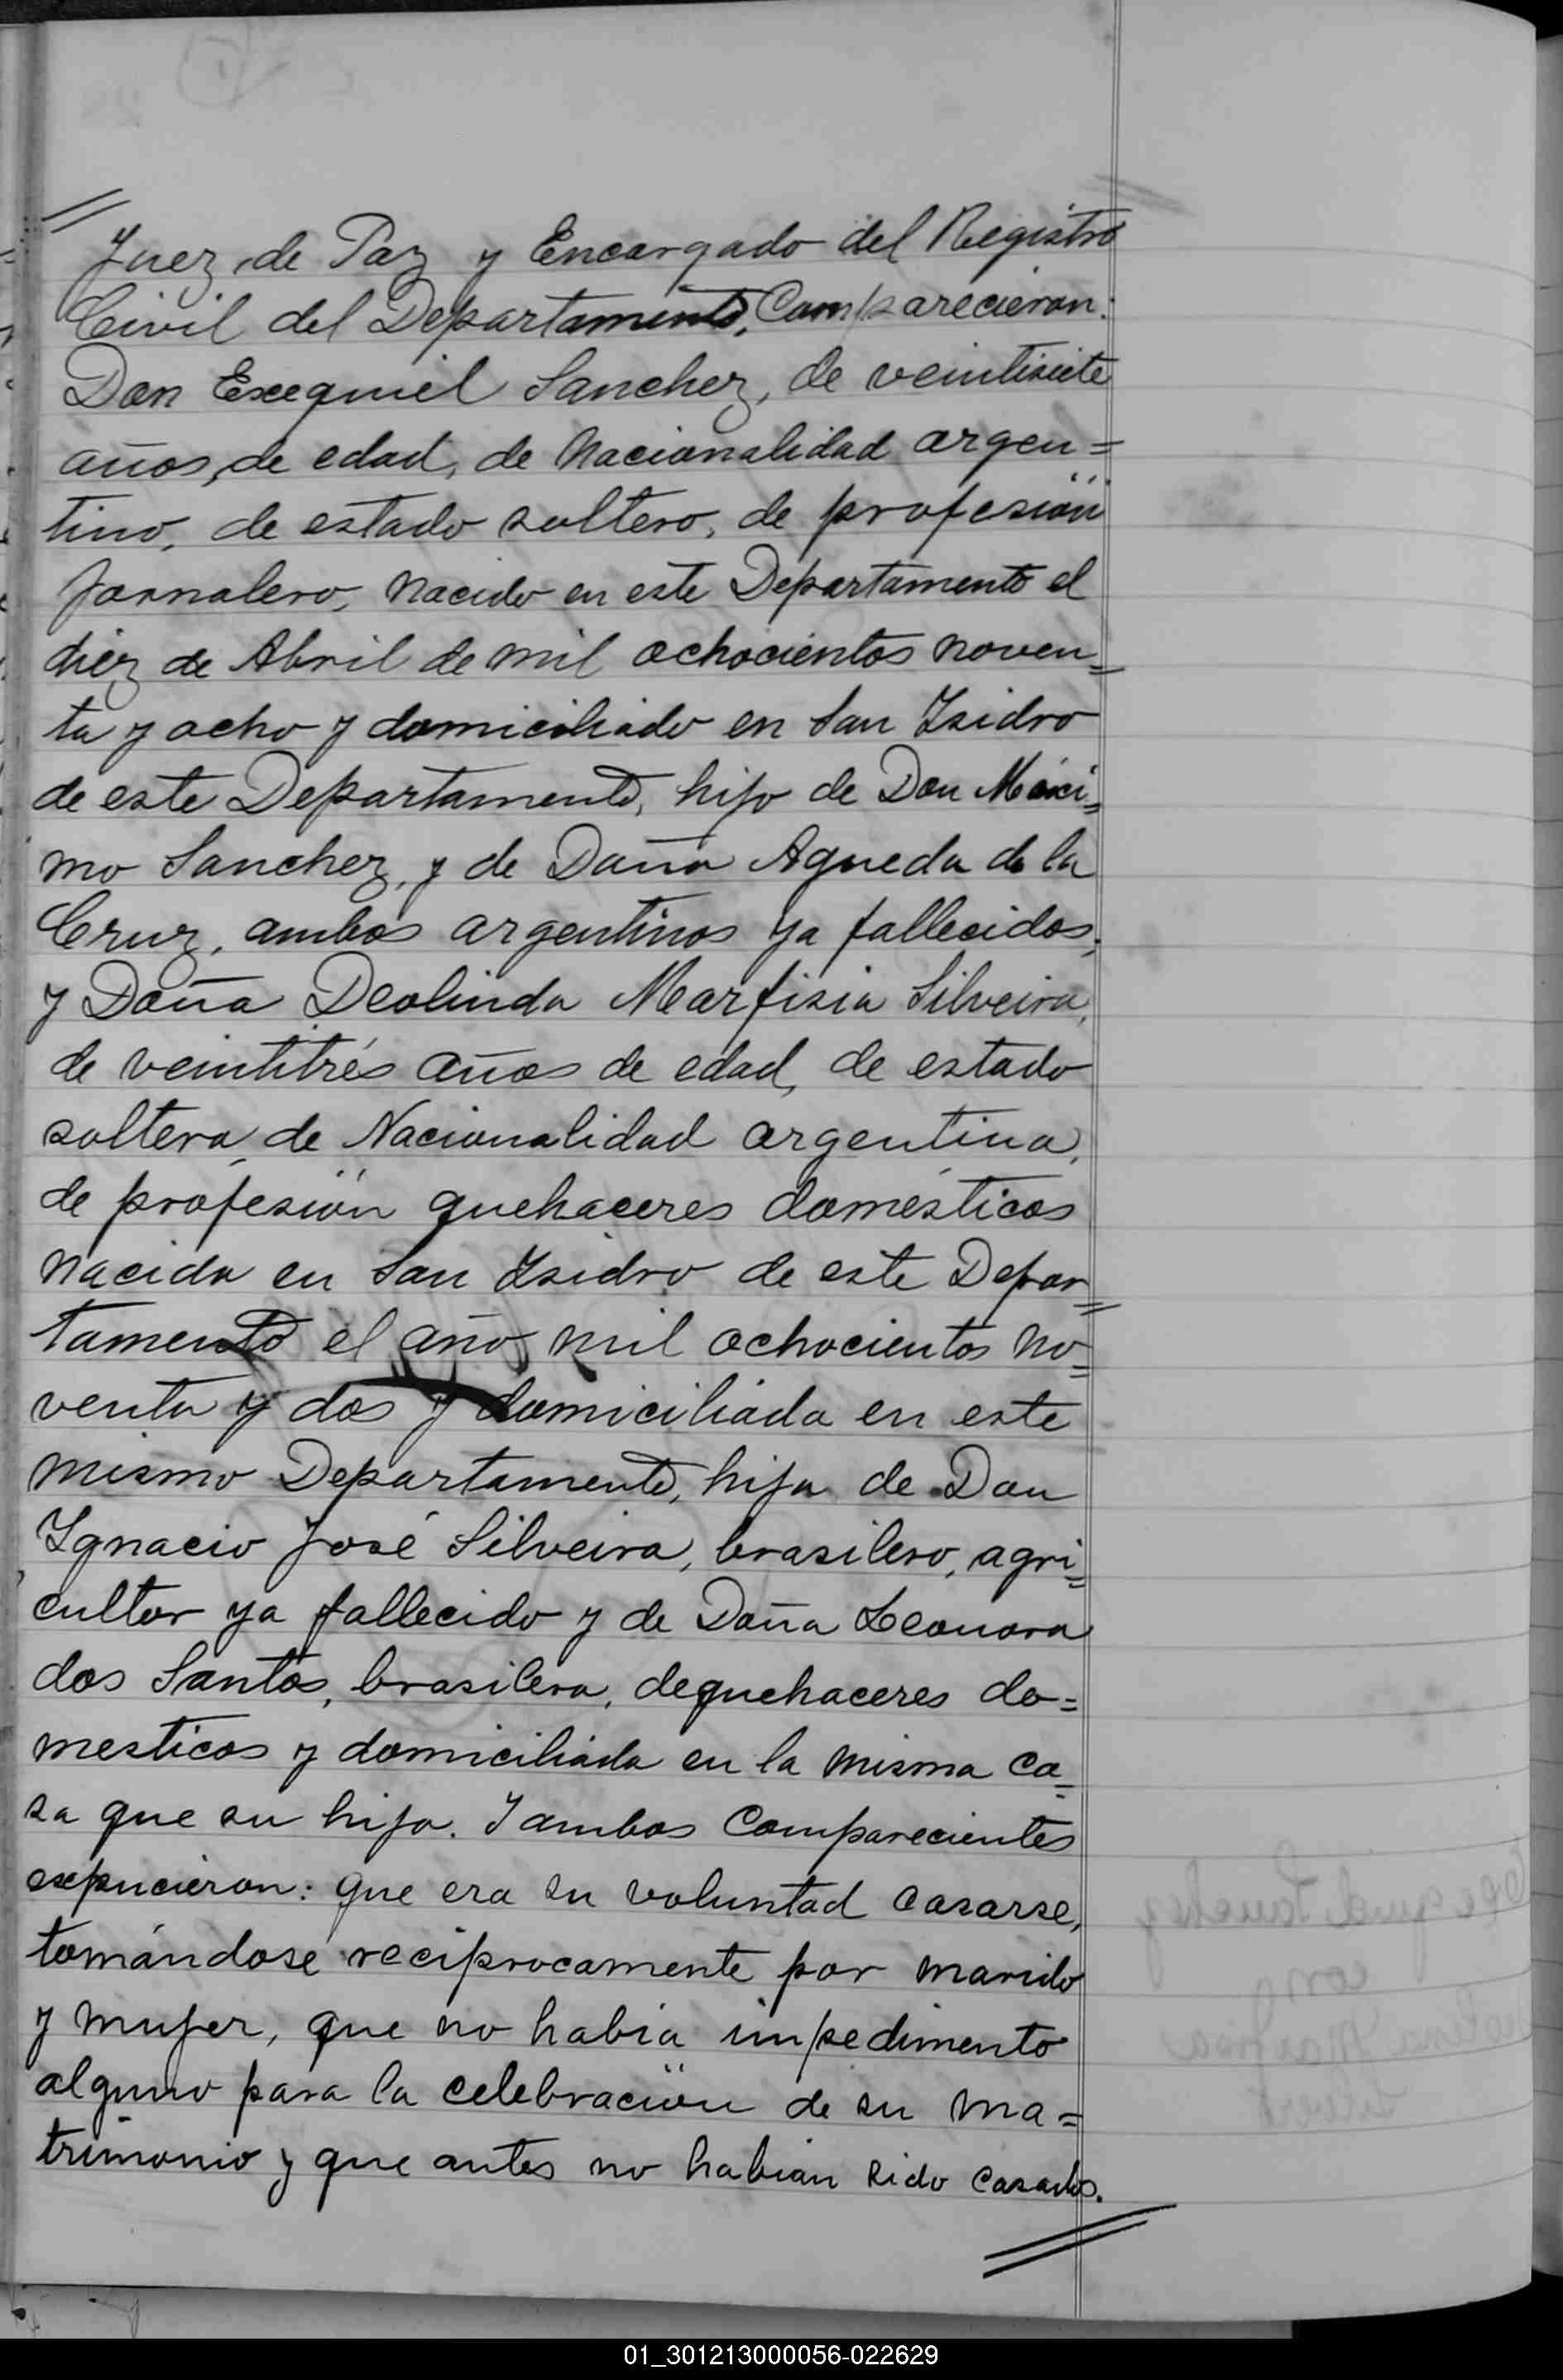 Juez de Paz y Encargado del Registro
Civil del Departamento, Comparecieron:
Don Exequiel Sanchez, de veintisiete
años, de edad, de Nacionalidad argen=
tino, de estado soltero, de profesión
Jornalero, Nacido en este Departamento el
diez de Abril de mil ochocientos noven=
ta y ocho y domiciliado en San Isidro
de este Departamento, hijo de Don Máxi=
mo Sanchez, y de Doña Agueda de la
Cruz, ambos argentinos ya fallecidos;
y Doña Deolinda Marfisia Silveira,
de veintitrés años de edad, de estado
soltera, de Nacionalidad argentina,
de profesión quehaceres domésticos
Nacida en San Isidro de este Depar=
tamento el año mil ochocientos no=
venta y dos y domiciliada en este
mismo Departamento, hija de Don
Ignacio José Silveira, brasilero, agri=
cultor ya fallecido y de Doña Leonora
dos Santos, brasilera, de quehaceres do=
mesticos y domiciliada en la misma ca=
sa que su hija. Y ambos Comparecientes
expucieron: que era su voluntad casarse,
tomándose reciprocamente por marido
y mujer, que no habia impedimento
alguno para la celebración de su ma=
trimonio y que antes no habian sido casados.
01_301213000056-022629